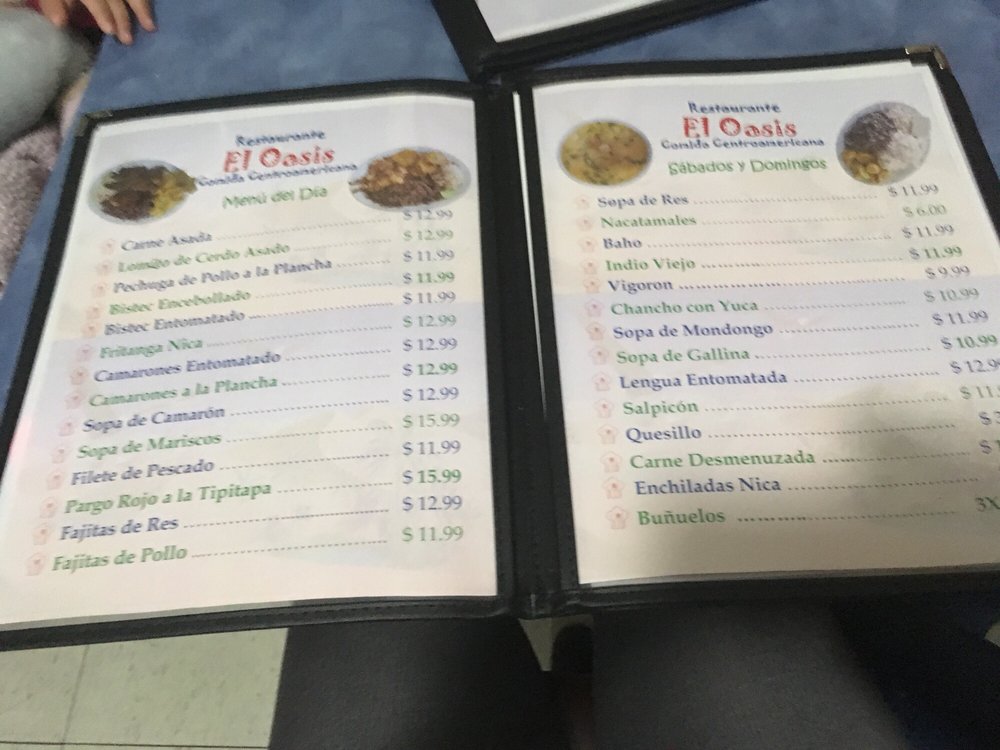 Restaurante
El Oasis
Comida Centroamericana
Menú del Día
Carne Asada ........ $ 12.99
Lomito de Cerdo Asado ........ $ 12.99
Pechuga de Pollo a la Plancha ........ $ 11.99
Bistec Encebollado ........ $ 11.99
Bistec Entomatado ........ $ 11.99
Fritanga Nica ........ $ 12.99
Camarones Entomatado ........ $ 12.99
Camarones a la Plancha ........ $ 12.99
Sopa de Camarón ........ $ 12.99
Sopa de Mariscos ........ $ 15.99
Filete de Pescado ........ $ 11.99
Pargo Rojo a la Tipitapa ........ $ 15.99
Fajitas de Res ........ $ 12.99
Fajitas de Pollo ........ $ 11.99
Restaurante
El Oasis
Comida Centroamericana
Sábados y Domingos
Sopa de Res ........ $ 11.99
Nacatamales ........ $ 6.00
Baho ........ $ 11.99
Indio Viejo ........ $ 11.99
Vigoron ........ $ 9.99
Chancho con Yuca ........ $ 10.99
Sopa de Mondongo ........ $ 11.99
Sopa de Gallina ........ $ 10.99
Lengua Entomatada ........ $ 12.9
Salpicón ........ $ 11.
Quesillo ........ $
Carne Desmenuzada ........ $
Enchiladas Nica ........
Buñuelos ........ 3X